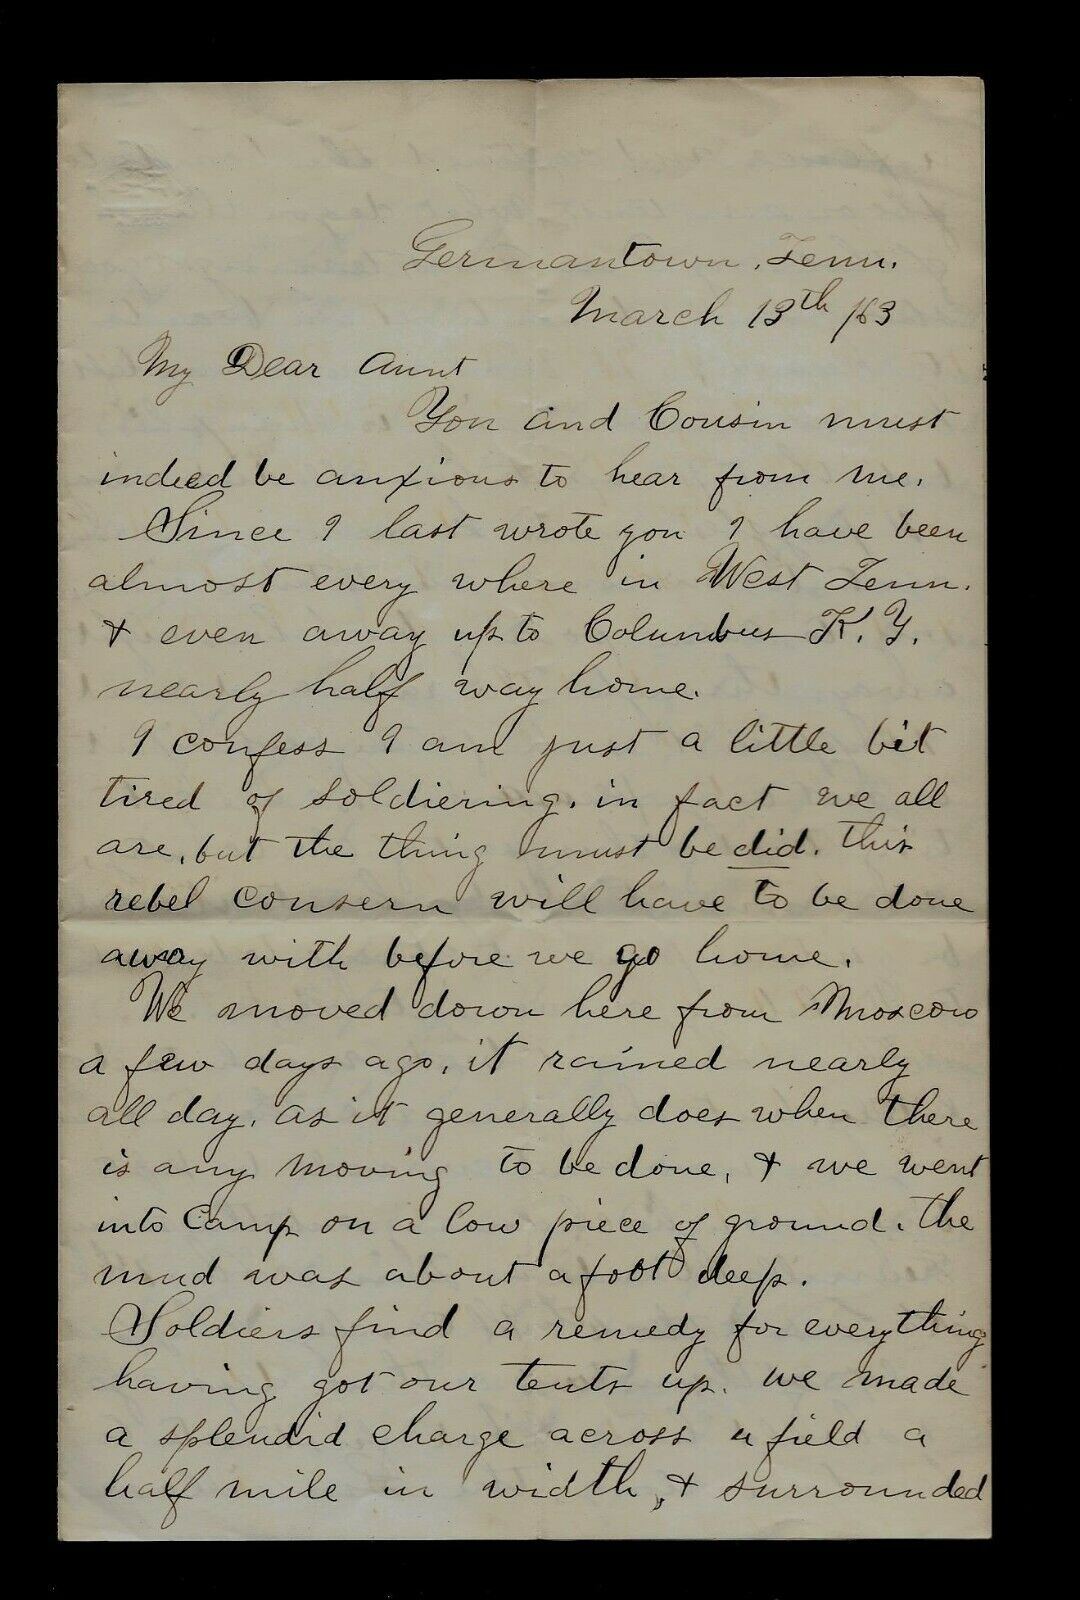 Germantown, Tenn.
March 13th /63
My Dear Aunt
You and Cousin must
indeed be anxious to hear from me.
Since I last wrote you I have been
almost every where in West Tenn.
& even away up to Columbus K.Y.
nearly half way home.
I confess I am just a little bit
tired of soldiering. in fact we all
are, but the thing must be did. this
rebel consern will have to be done
away with before we go home.
We moved down here from Moscow
a few days ago, it rained nearly
all day, as it generally does when there
is any moving to be done, & we went
into Camp on a low piece of ground. the
mud was about a foot deep.
Soldiers find a remedy for everything
having got our tents up. we made
a splendid charge across a field a
half mile in width, & surrounded